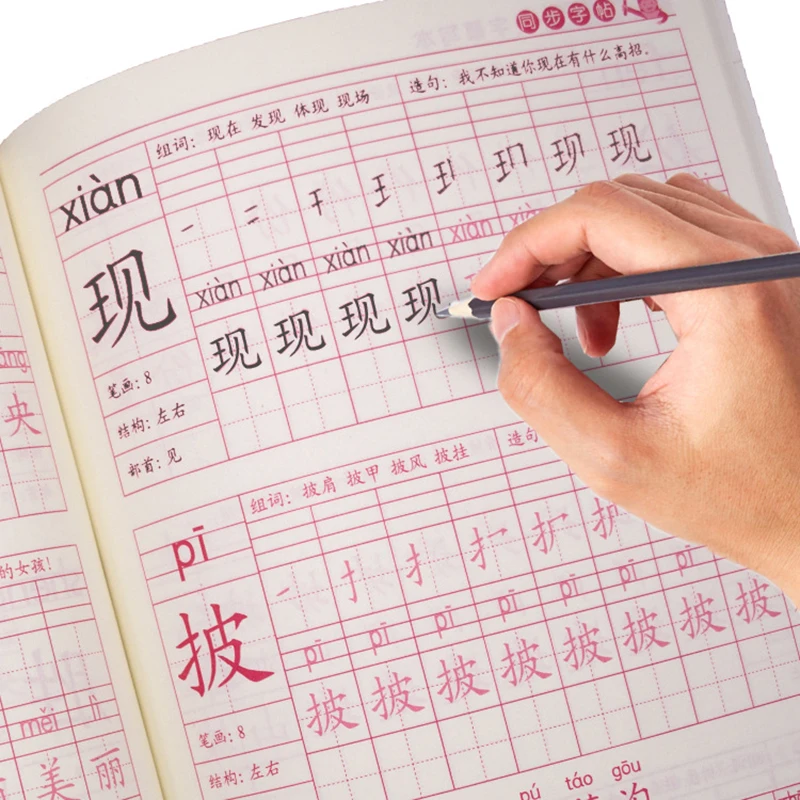 同步字帖
组词：现在 发现 体现 现场
造句：我不知道你现在有什么高招。
xiàn
现
现
xiàn xiàn xiàn xiàn xiàn xiàn
现 现 现 现
笔画：8
结构：左右
部首：见
组词：披肩 披甲 披风 披挂
造句
pī
披
pī pī pī pī pī pī pī
披 披 披 披 披 披 披 披
笔画：8
结构：左右
pú táo gōu
央
的女孩！
měi lì
美 丽